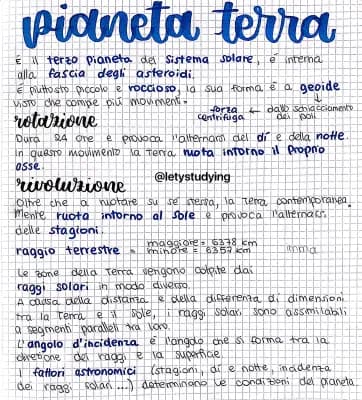 pianeta terra
È il terzo pianeta del Sistema Solare, è interna
alla fascia degli asteroidi.
È piuttosto piccolo e roccioso, la sua forma è a geoide
visto che compie più movimenti.
forza centrifuga ← dallo schiacciamento dei poli
rotazione
Dura 24 ore e provoca l'alternarsi del dì e della notte.
In questo movimento la Terra ruota intorno il proprio
asse.
@letystudying
rivoluzione
Oltre che a ruotare su se stessa, la Terra contemporanea-
mente ruota intorno al Sole e provoca l'alternarsi
delle stagioni.
raggio terrestre = maggiore = 6378 km
minore = 6357 km
Le zone della Terra vengono colpite dai
raggi solari in modo diverso.
A causa della distanza e della differenza di dimensioni
tra la Terra e il Sole, i raggi solari sono assimilabili
a segmenti paralleli tra loro.
L'angolo d'incidenza è l'angolo che si forma tra la
direzione dei raggi e la superficie.
I fattori astronomici (stagioni, dì e notte, incidenza
dei raggi solari...) determinano le condizioni del pianeta